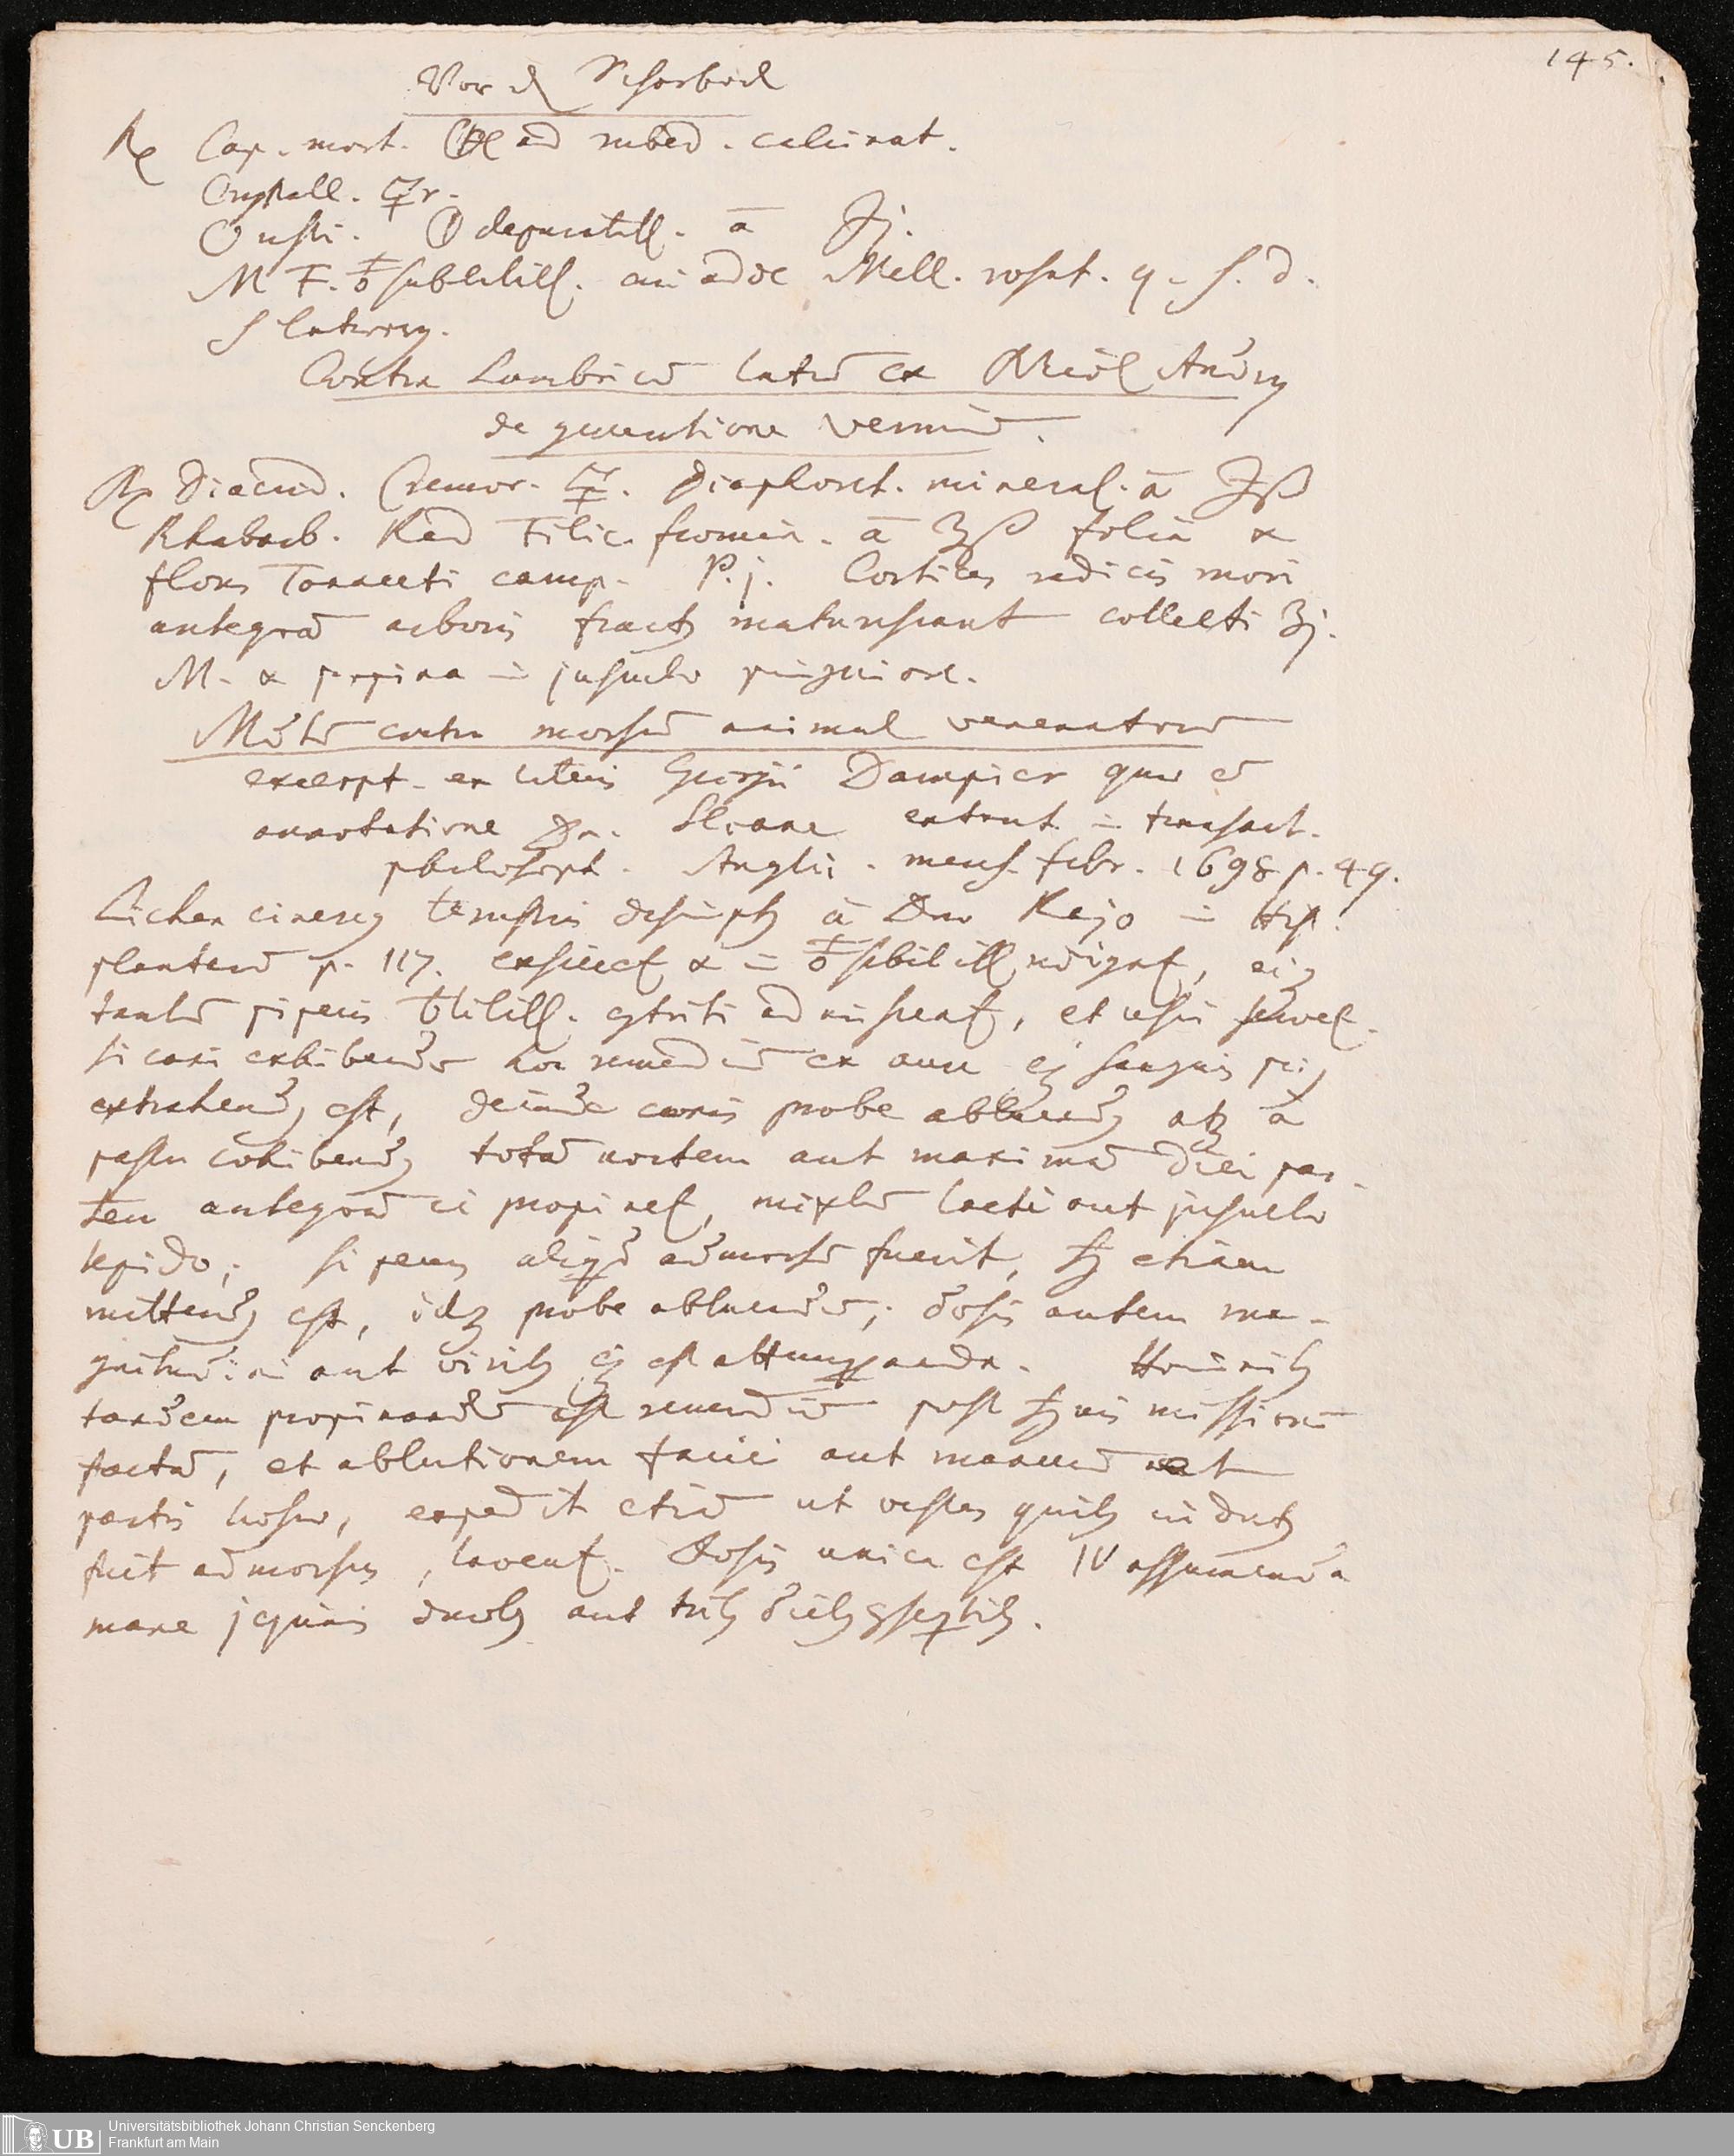 145.
Vor d Schorbock
℞ Cap. mort. ad rubed. calcinat.
Crystall. ♁ri.
usti. ⦶ depuratiss. ā ℥j.
M F. subtiliss. cui adde Mell. rosat. q. s. d.
S Latwerg.
Contra Lumbricū latū ex Nicol Andry
de generatione vermiū.
℞ Diacrid. Cremor. Diaphoret. mineral. ā
Rhabarb. Rad Filic. foemin. ā ʒß folia &
flores Tanaceti camp. P.j. Corticis radicis mori
anteqvā arboris fructus maturescant collecti ʒj.
M. & propina in jusculo pinguiore.
contra morsū animal venenatorū
excerpt. ex literis Georgii Dampier quae cū
annotatione Dn. Sloane extant in transact.
philosoph. Anglic. mens. febr. 1698 p. 49.
Lichen cinereus terrestris descriptus à Dno Rajo in Hist.
plantarū p. 117. exsiccet & in subtiliss redigat, ejus
tantū piperis adnisceat, et usui servet.
si cani exhibendū hoc remediū ex aure ejus sanguis pri
extrahendus est, deinde canis probe abluendus atque à
pastu cohibendus totā noctem aut maximā diei par-
tem anteqvā ei propinet, mixtū lacti aut jusculo
tepido; si pecus aliqd admorsū fuerit, etiam
mittendus est, idque probe abluendū; dosis autem ma-
gnitudini aut viribus ejus est attemperanda. Hominibus
tandem propinandū est remediū post missionē
factā, et ablutionem faciei aut manuū aut
partis laesae, expedit etiā ut vestes quibus indutus
fuit admorsus, lavent. Dosis unica est IV assumenda
mane jejunis duobus aut tribus diebus
Universitätsbibliothek Johann Christian Senckenberg
UB Frankfurt am Main